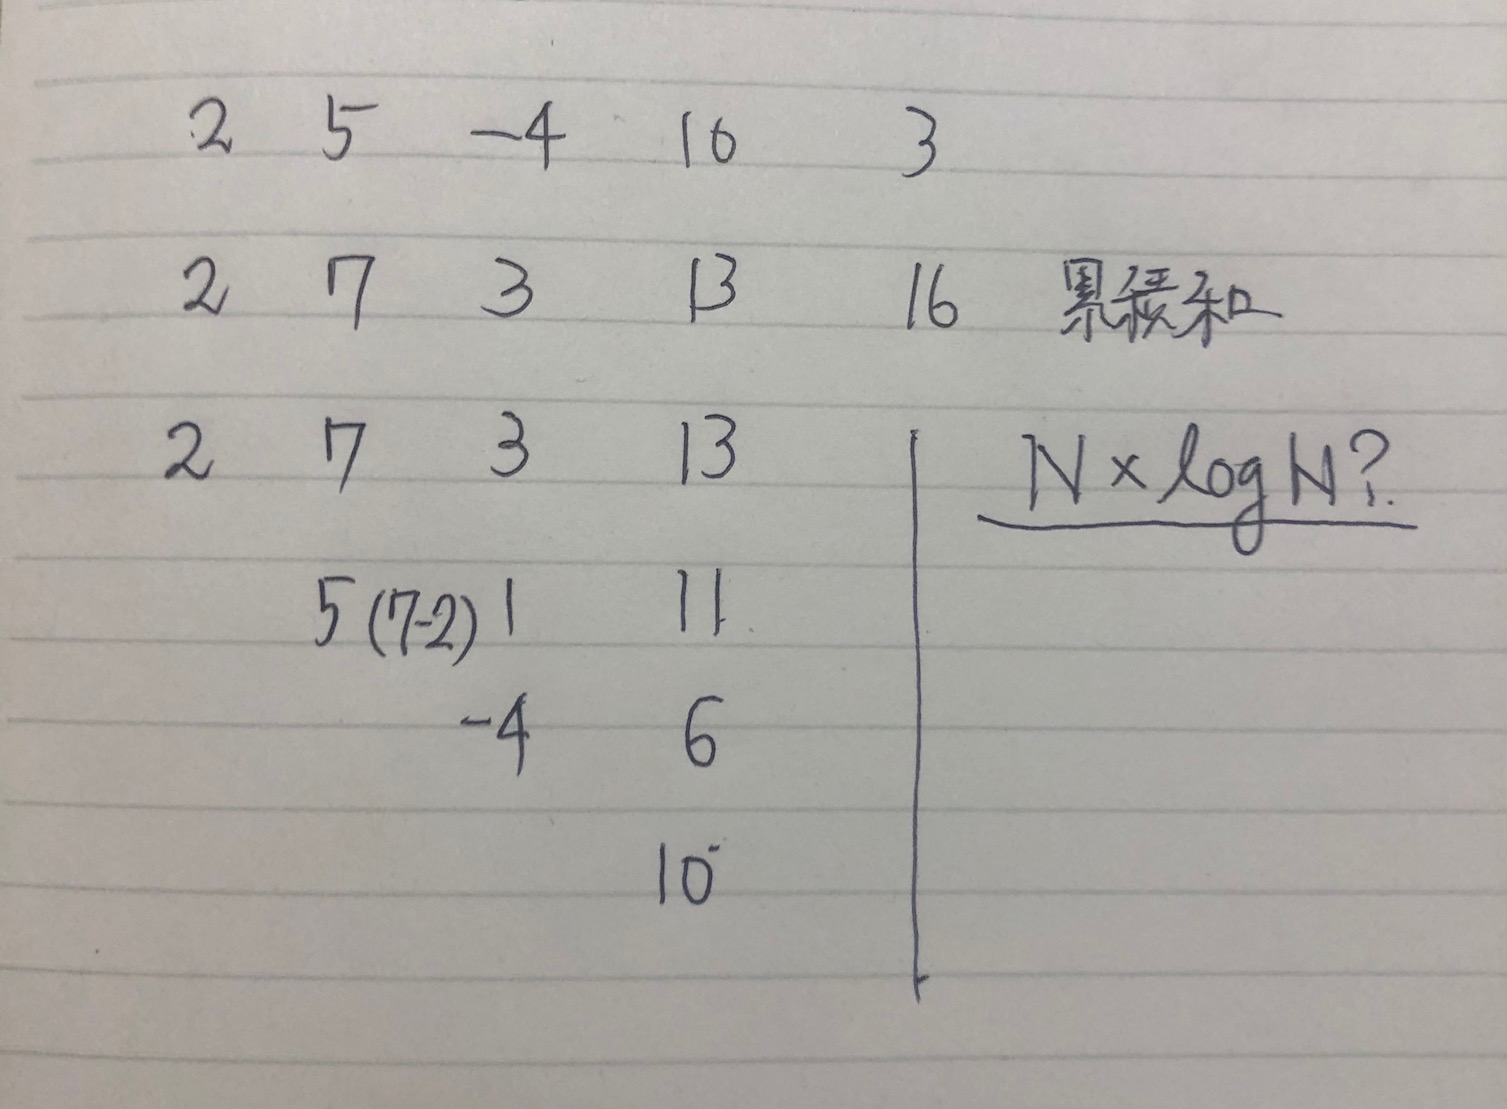 2 5 -4 10 3
2 7 3 13 16 累積和
2 7 3 13 N×logN?
5 (7-2) 1 11
-4 6
10